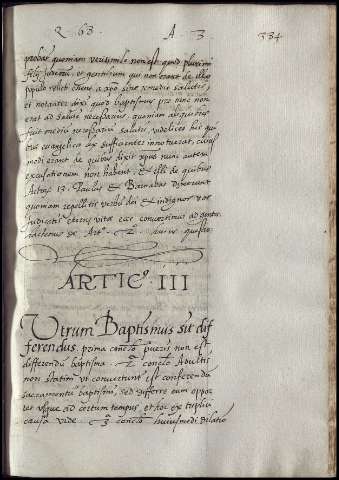 Q. 68 A. 3 334
probat quoniam verisimile non est quod plurimi
filij Judeorum, et gentilium qui non erant de illo
populo
et notanter dixi quod baptismus pro tunc non
erat ad salutem necessarius, quoniam aliquibus
fuit mediu necessariu salutis, videlicet his qui
bus evangelica lex sufficienter innotuerat, cuius
modi erant de quibus dixit xpus nunc autem
excusationem non habent. Et illi de quibus
Actor. 13. Paulus et Barnabas dixerunt
quoniam repellitis verbu dei et indignos vos
iudicatis eternæ vitæ ecce convertimur ad gentes
hactenus de Arto. 2o. huius questio
ARTICo. III
Utrum Baptismus sit dif
ferendus. prima conclo. pueris non est
differendu baptisma. 2a. conclo. Adultis
non statim ut convertuntur est conferendu
sacramentu baptismi, sed differre eum oppor
tet usque ad certum tempus, et hoc ex triplici
causa vide. 3a conclo. huiusmodi dilatio